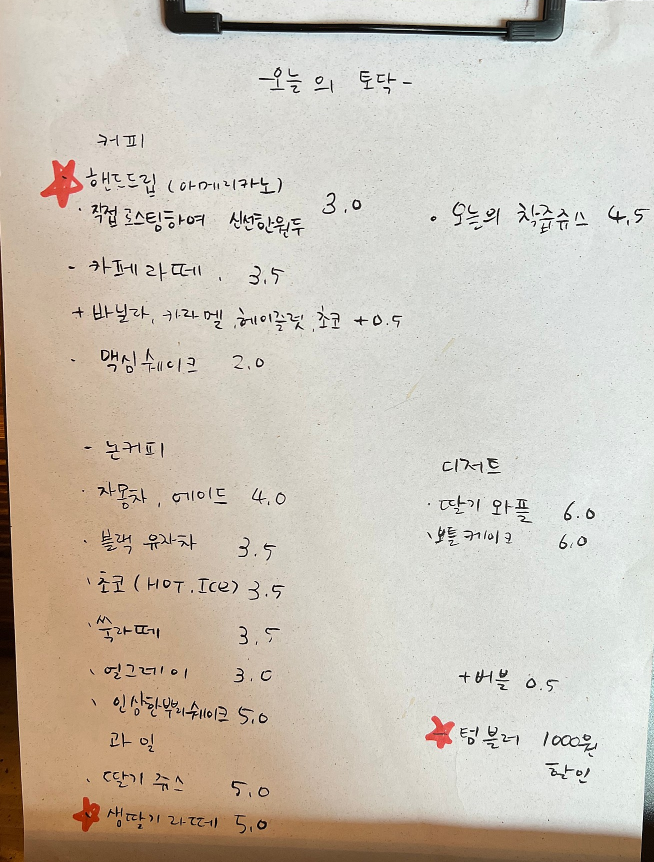 -오늘의 토닥-
커피
핸드드립 (아메리카노) 3.0
· 직접로스팅하여 신선한원두
- 카페라떼. 3.5
+ 바닐라, 카라멜, 헤이즐럿, 초코 +0.5
· 맥심쉐이크 2.0
· 오늘의 착즙쥬스 4.5
- 논커피
· 자몽차, 에이드 4.0
· 블랙 유자차 3.5
· 초코 (HOT. Ice) 3.5
· 쑥라떼 3.5
· 얼그레이 3.0
· 인삼한뿌리쉐이크 5.0
과일
· 딸기 쥬스 5.0
· 생딸기라떼 5.0
디저트
· 딸기 와플 6.0
· 보틀케이크 6.0
+버블 0.5
- 텀블러 1000원
할인